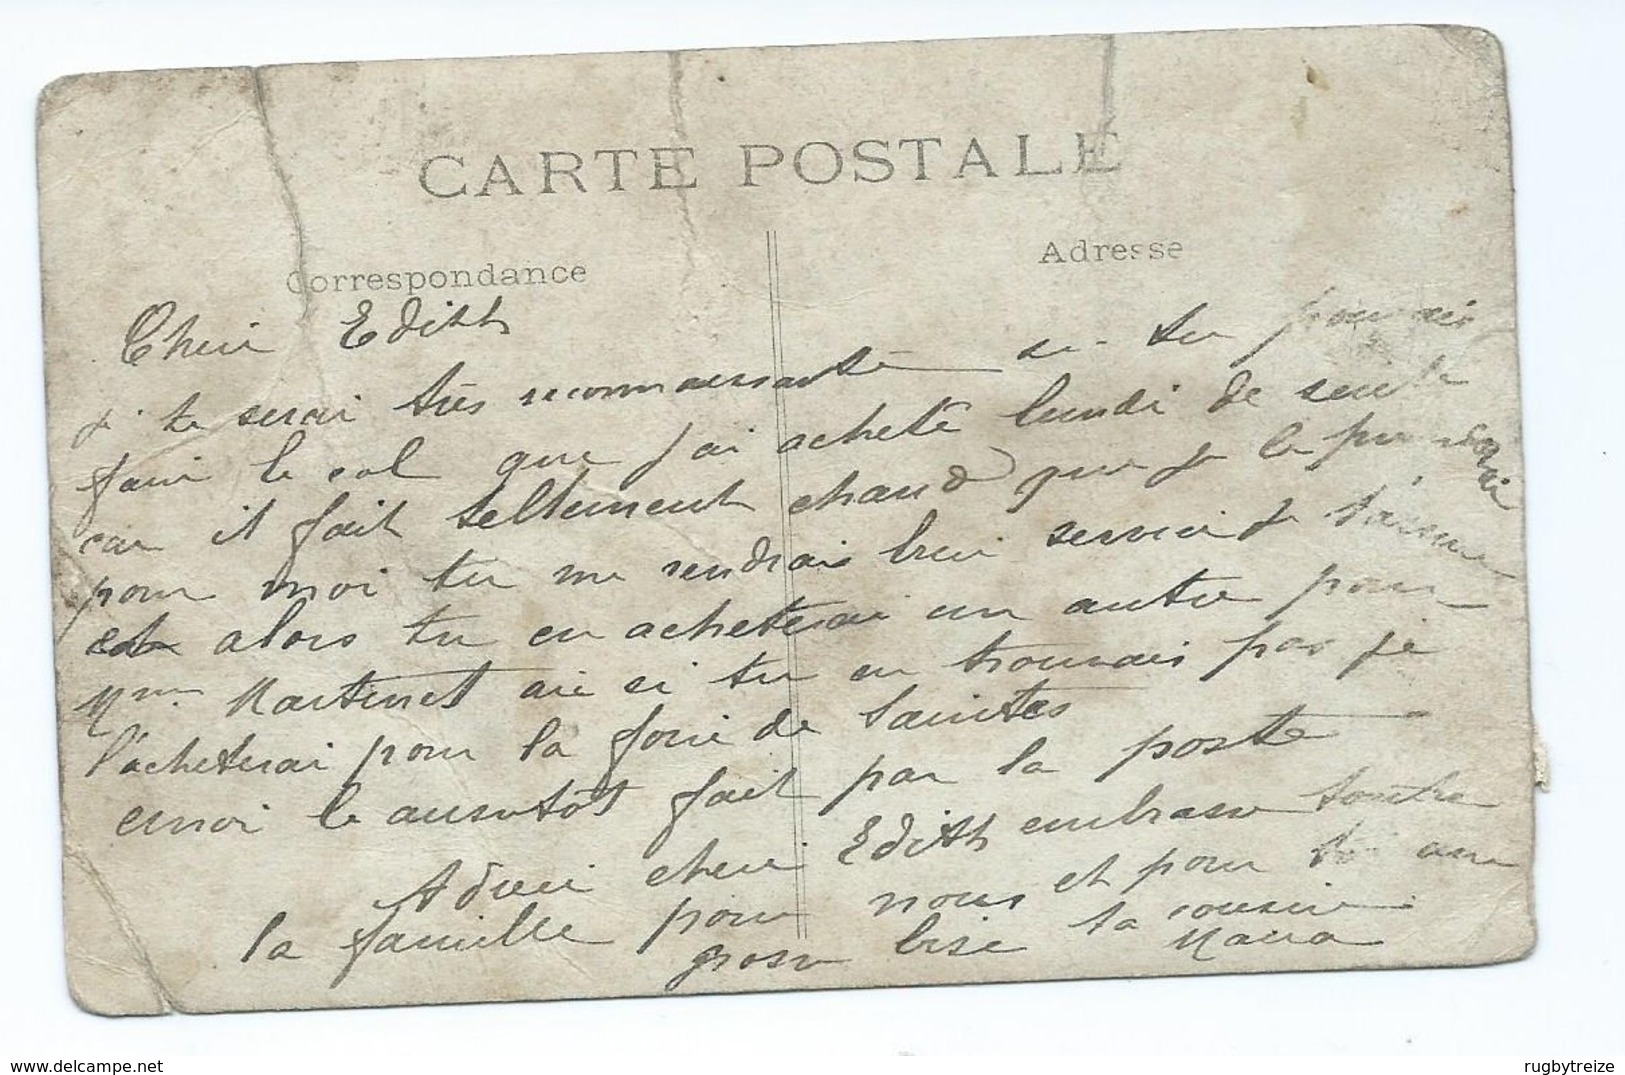 CARTE POSTALE
Correspondance
Adresse
Cheri Edith
je te serai très reconnaissante si tu pouvais
faire le col que j'ai acheté lundi de suite
car il fait tellement chaud que je le prendrai
pour moi tu me rendrais bien service je t'assure
et alors tu en acheterai un autre pour
Mme Martinet si tu en trouvais pas je
l'acheterai pour la foire de Saintes
envoi le aussitôt fait par la poste
Adieu cheri Edith embrasse toute
la famille pour nous et pour toi une
grosse bise ta cousine
Maria
delcampe.net
rugbytreize